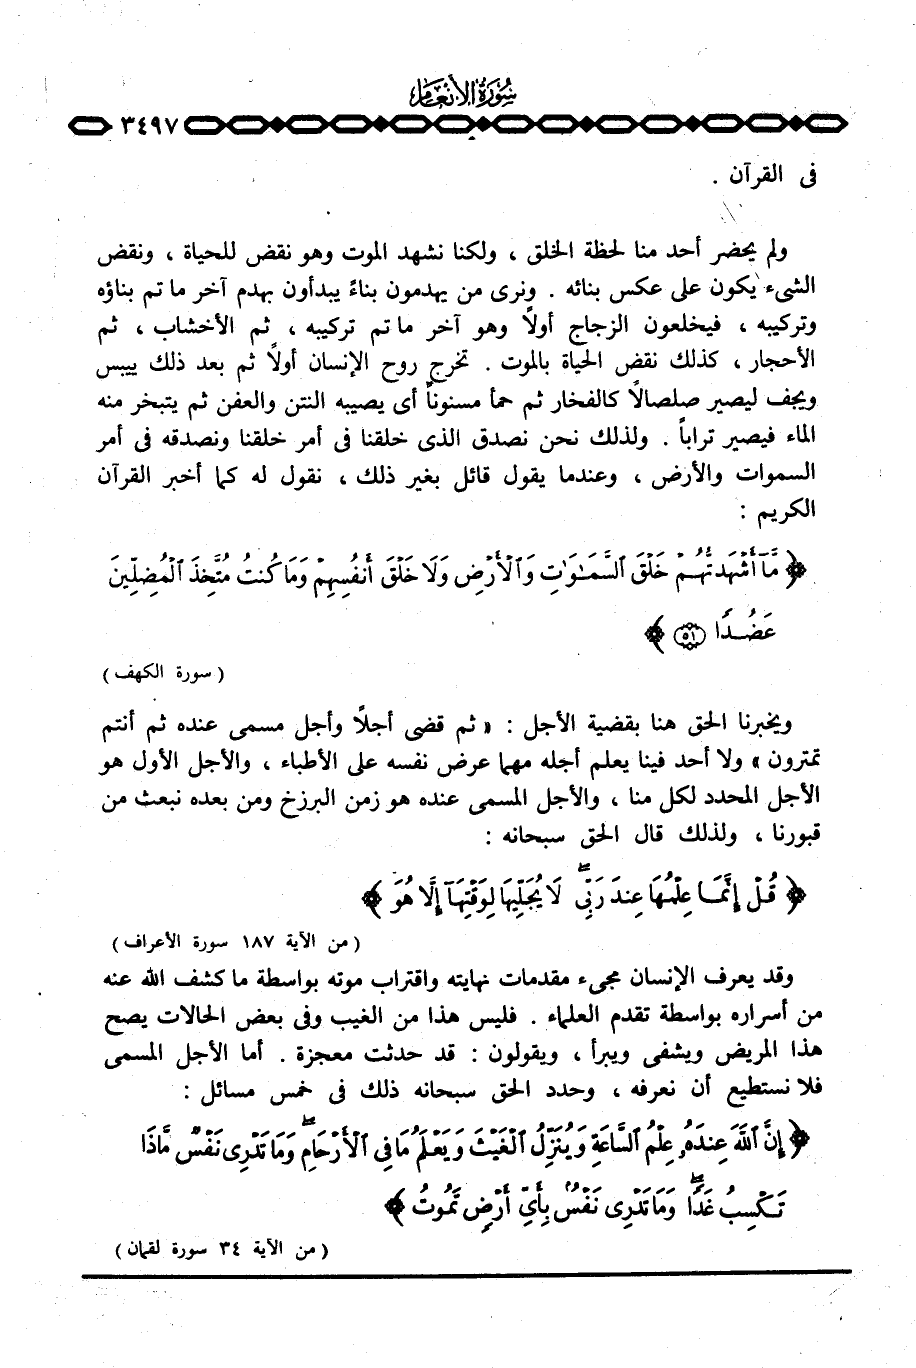 سورة الأنعام
٣٤٩٧
فى القرآن .
ولم يحضر أحد منا لحظة الخلق ، ولكنا نشهد الموت وهو نقض للحياة ، ونقض
الشىء يكون على عكس بنائه . ونرى من يهدمون بناءً يبدأون بهدم آخر ما تم بناؤه
وتركيبه ، فيخلعون الزجاج أولاً وهو آخر ما تم تركيبه ، ثم الأخشاب ، ثم
الأحجار ، كذلك نقض الحياة بالموت . تخرج روح الإنسان أولاً ثم بعد ذلك ييبس
ويجف ليصير صلصالاً كالفخار ثم حمأ مسنوناً أى يصيبه النتن والعفن ثم يتبخر منه
الماء فيصير تراباً . ولذلك نحن نصدق الذى خلقنا فى أمر خلقنا ونصدقه فى أمر
السموات والأرض ، وعندما يقول قائل بغير ذلك ، نقول له كما أخبر القرآن
الكريم :
﴿ مَّآ أَشْهَدتُّهُمْ خَلْقَ ٱلسَّمَٰوَٰتِ وَٱلْأَرْضِ وَلَا خَلْقَ أَنفُسِهِمْ وَمَا كُنتُ مُتَّخِذَ ٱلْمُضِلِّينَ
عَضُدًا ٥١ ﴾
( سورة الكهف )
ويخبرنا الحق هنا بقضية الأجل : « ثم قضى أجلاً وأجل مسمى عنده ثم أنتم
تمترون » ولا أحد فينا يعلم أجله مهما عرض نفسه على الأطباء ، والأجل الأول هو
الأجل المحدد لكل منا ، والأجل المسمى عنده هو زمن البرزخ ومن بعده نبعث من
قبورنا ، ولذلك قال الحق سبحانه :
﴿ قُلْ إِنَّمَا عِلْمُهَا عِندَ رَبِّى ۖ لَا يُجَلِّيهَا لِوَقْتِهَآ إِلَّا هُوَ ﴾
( من الآية ١٨٧ سورة الأعراف )
وقد يعرف الإنسان مجىء مقدمات نهايته واقتراب موته بواسطة ما كشف الله عنه
من أسراره بواسطة تقدم العلماء . فليس هذا من الغيب وفى بعض الحالات يصح
هذا المريض ويشفى ويبرأ ، ويقولون : قد حدثت معجزة . أما الأجل المسمى
فلا نستطيع أن نعرفه ، وحدد الحق سبحانه ذلك فى خمس مسائل :
﴿ إِنَّ ٱللَّهَ عِندَهُۥ عِلْمُ ٱلسَّاعَةِ وَيُنَزِّلُ ٱلْغَيْثَ وَيَعْلَمُ مَا فِى ٱلْأَرْحَامِ ۖ وَمَا تَدْرِى نَفْسٌ مَّاذَا
تَكْسِبُ غَدًا ۖ وَمَا تَدْرِى نَفْسٌۢ بِأَىِّ أَرْضٍ تَمُوتُ ﴾
( من الآية ٣٤ سورة لقمان )